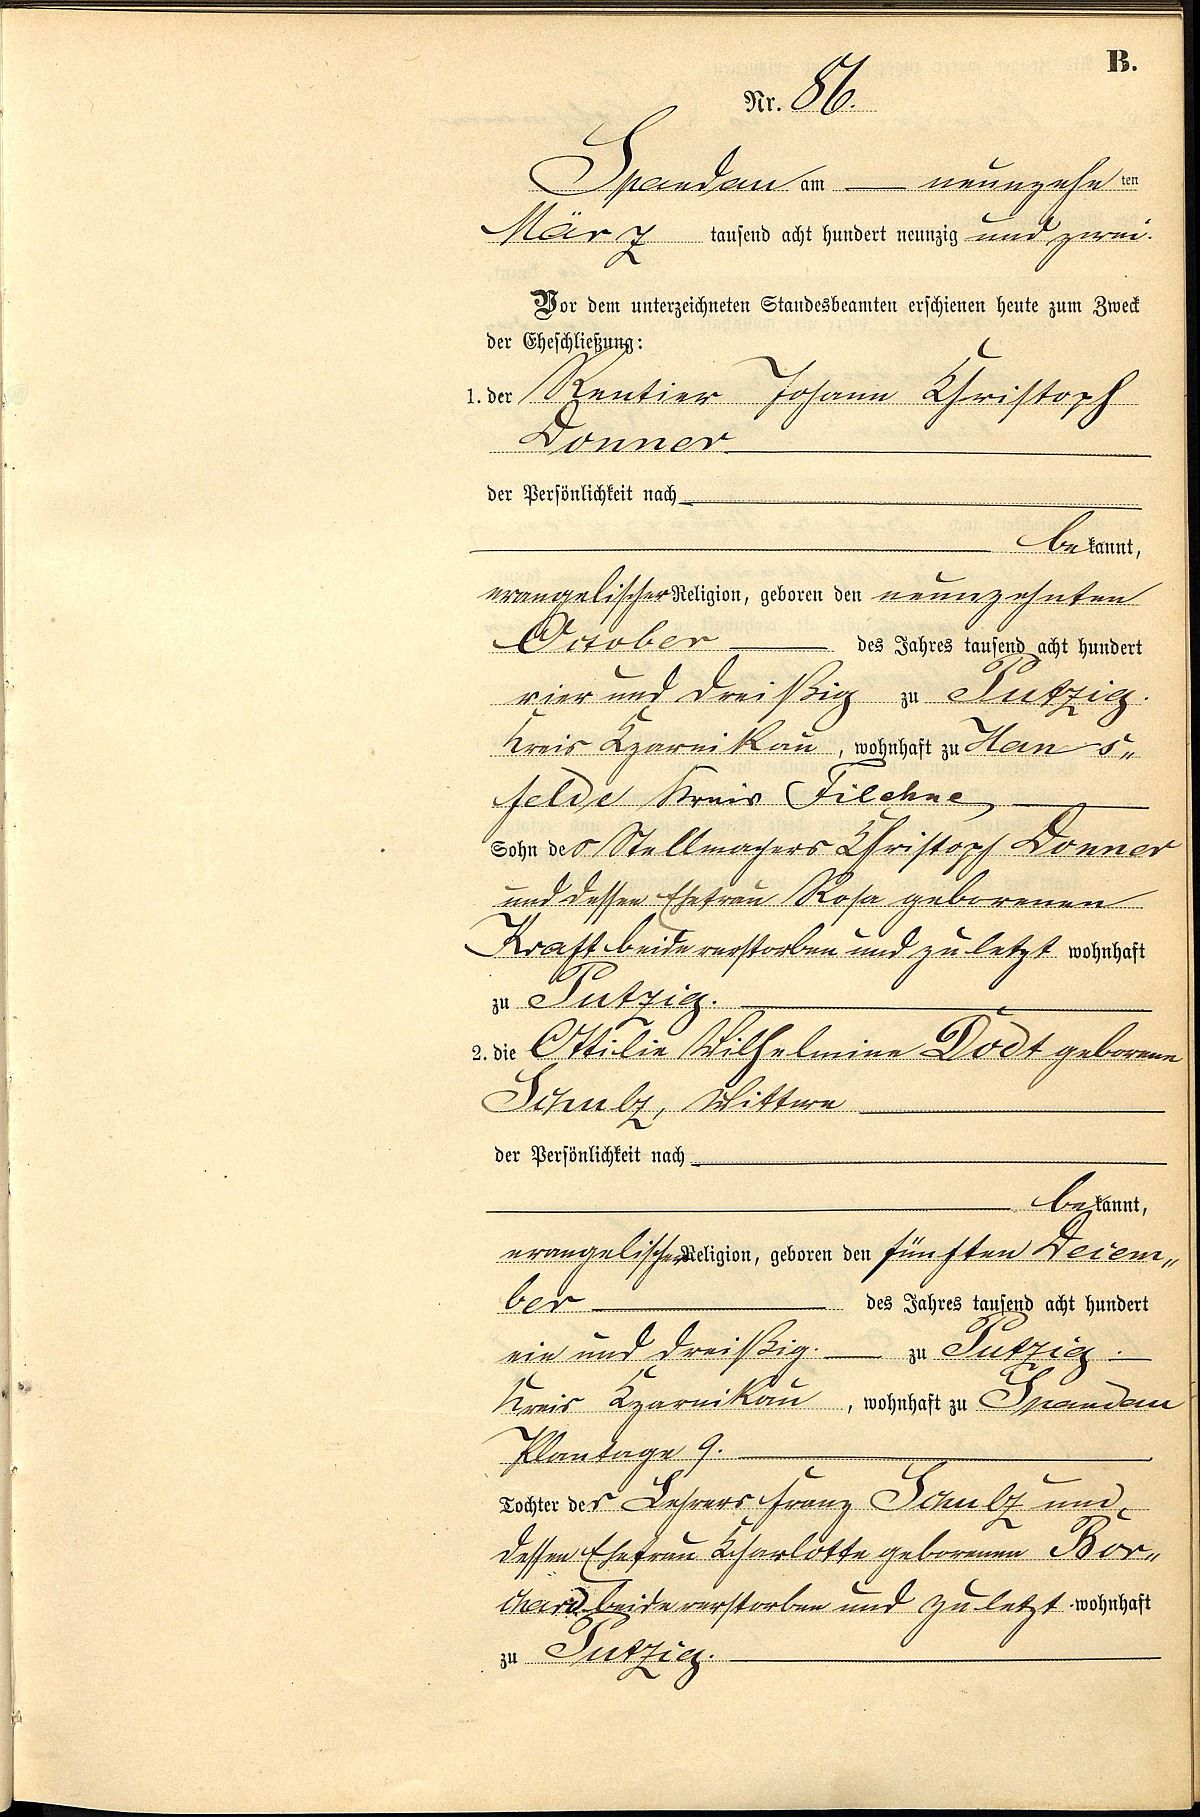 B.
Nr. 86.
Spandau am — neunzehnten
März tausend acht hundert neunzig und zwei.
Vor dem unterzeichneten Standesbeamten erschienen heute zum Zweck
der Eheschließung:
1. der Rentier Johann Christoph
Donner
der Persönlichkeit nach
bekannt,
evangelischer Religion, geboren den neunzehnten
October des Jahres tausend acht hundert
vier und dreißig zu Putzig.
Kreis Czarnikau, wohnhaft zu Hans„
felde Kreis Filehne
Sohn des Stellmachers Christoph Donner
und dessen Ehefrau Rosa geborenen
Kraft beide verstorben und zuletzt wohnhaft
zu Putzig.
2. die Ottilie Wilhelmine Dodt geborene
Schulz, Wittwe
der Persönlichkeit nach
bekannt,
evangelischer Religion, geboren den fünften Decem„
ber des Jahres tausend acht hundert
ein und dreißig. — zu Putzig.
Kreis Czarnikau, wohnhaft zu Spandau
Plantage 9.
Tochter des Lehrers Franz Schulz und
dessen Ehefrau Charlotte geborenen Bor„
chard beide verstorben und zuletzt wohnhaft
zu Putzig.